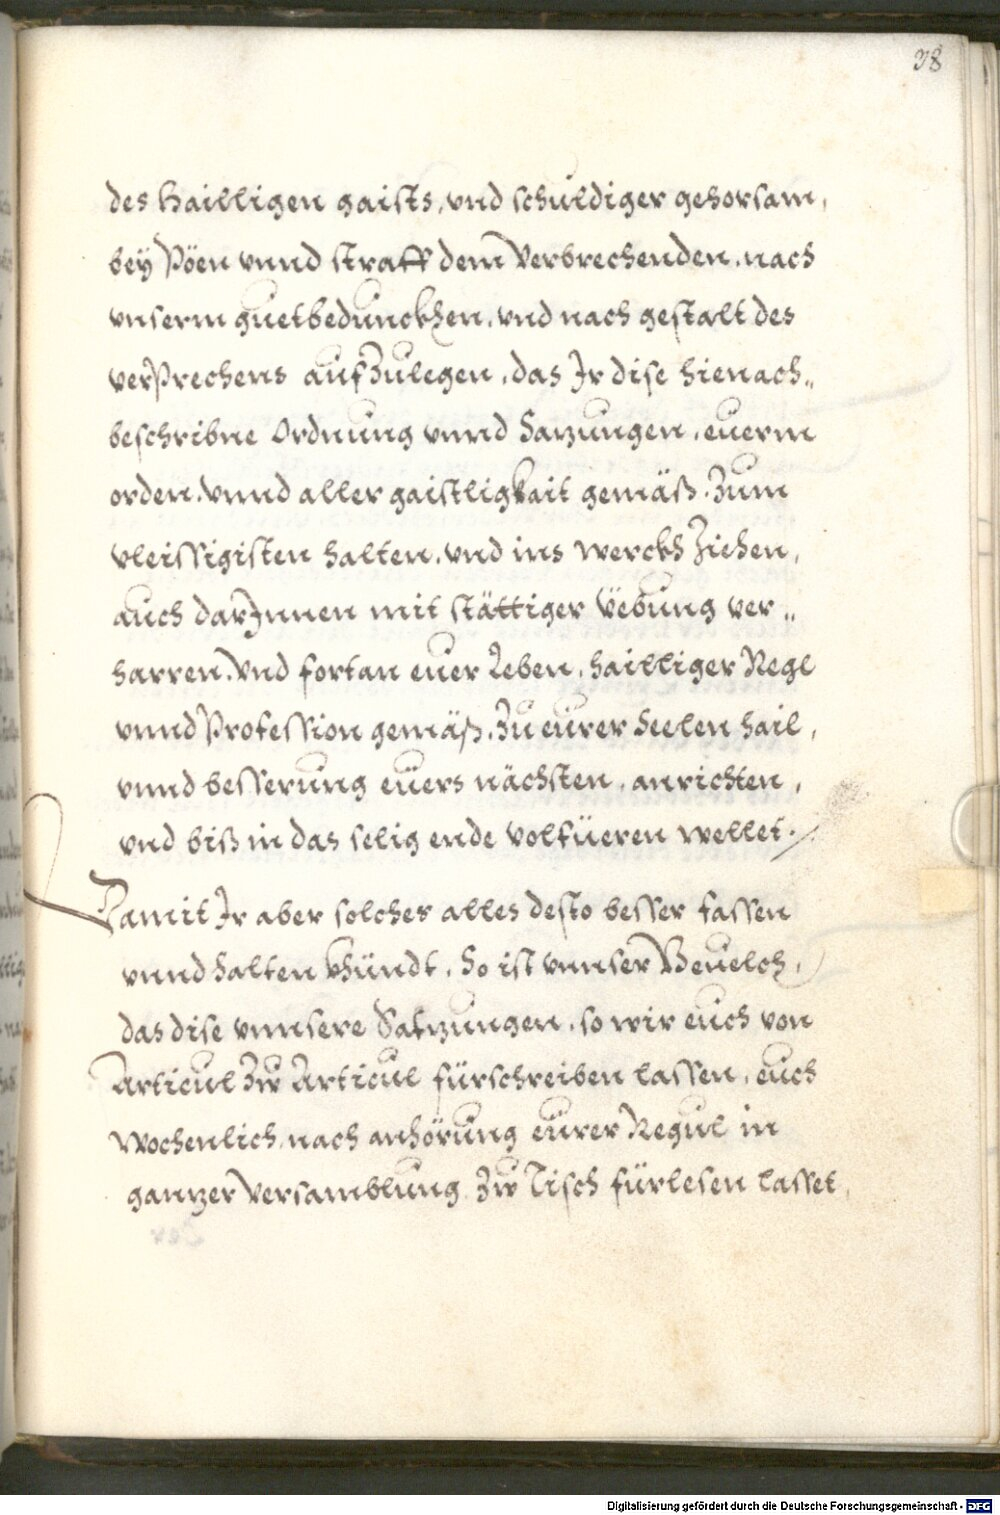 38
des Hailligen gaists, vnd schuldiger gehorsam,
beÿ Pöen vnnd straff dem Verbrechenden, nach
vnserm guetbedunckhen, vnd nach gestalt des
verPrechens aufZulegen, das Ir dise hienach„
beschribne Ordnung vnnd Satzungen, euerm
orden, Vnnd aller gaistligkait gemäß, Zum
vleissigisten halten, vnd ins werckh Ziehen,
auch darInnen mit stättiger Vebung ver„
harren, Vnd fortan euer Leben, hailliger Regl
vnnd Profession gemäß, Zu eurer Seelen hail,
vnnd besserung euers nächsten, anrichten,
vnd biß in das selig ende volfüeren wellet./
Damit Ir aber solches alles desto besser fassen
vnnd halten khündt, So ist vnnser Beuelch,
das dise vnnsere Satzungen, so wir euch von
Articul Zw Articul fürschreiben lassen, euch
wochenlich, nach anhörung eurer Regul in
gantzer Versamblung Zw Tisch fürlesen lasset,
Digitalisierung gefördert durch die Deutsche Forschungsgemeinschaft - DFG